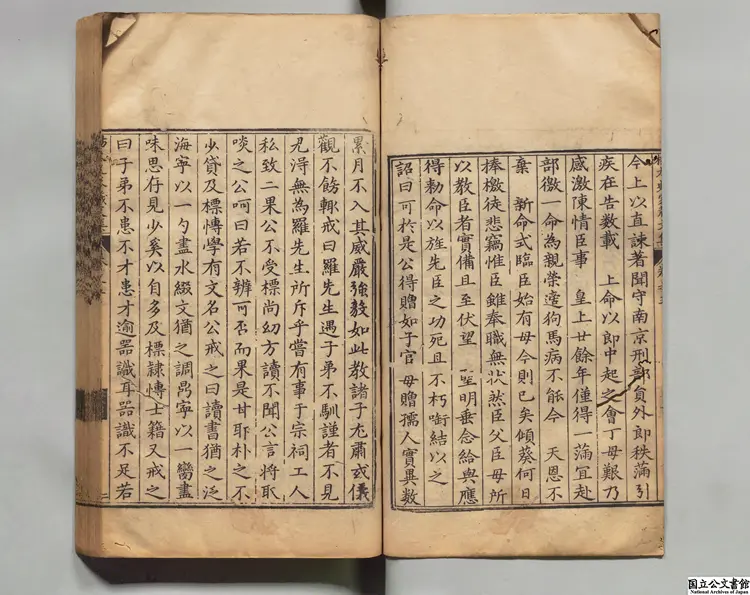 今上以直諫著聞守南京刑部員外郎秩滿引
疾在告数載　上命以郎中起之會丁母艱乃
感激陳情臣事　皇上廿餘年僅得　滿宜赴
部徼一命為親榮遠狗馬病不能今　天恩不
棄　新命式臨臣始有母今則已矣傾葵何日
捧檄徒悲竊惟臣雖奉職無狀然臣父臣母所
以教臣者實備且至伏望　聖明垂念給與應
得勅命以旌先臣之功死且不朽啣結以之
詔曰可於是公得贈如子官　母贈孺人實異数
累月不入其威嚴強毅如此教諸子尤肅或儀
觀不飭輒戒曰羅先生遇子弟不馴謹者不見
兄淂無為羅先生所斥乎嘗有事于宗祠工人
私致二果公不受標尚幼方讀不聞公言將取
啖之公呵曰若不辨可否而果是甘耶朴之不
少貸及標慱學有文名公戒之曰讀書猶之泛
海寧以一勺盡水綴文猶之調鼎寧以一臠盡
味思存見少奚以自多及標隷慱士籍又戒之
曰子弟不患不才患才逾器識耳器識不足若
二
国立公文書館
National Archives of Japan